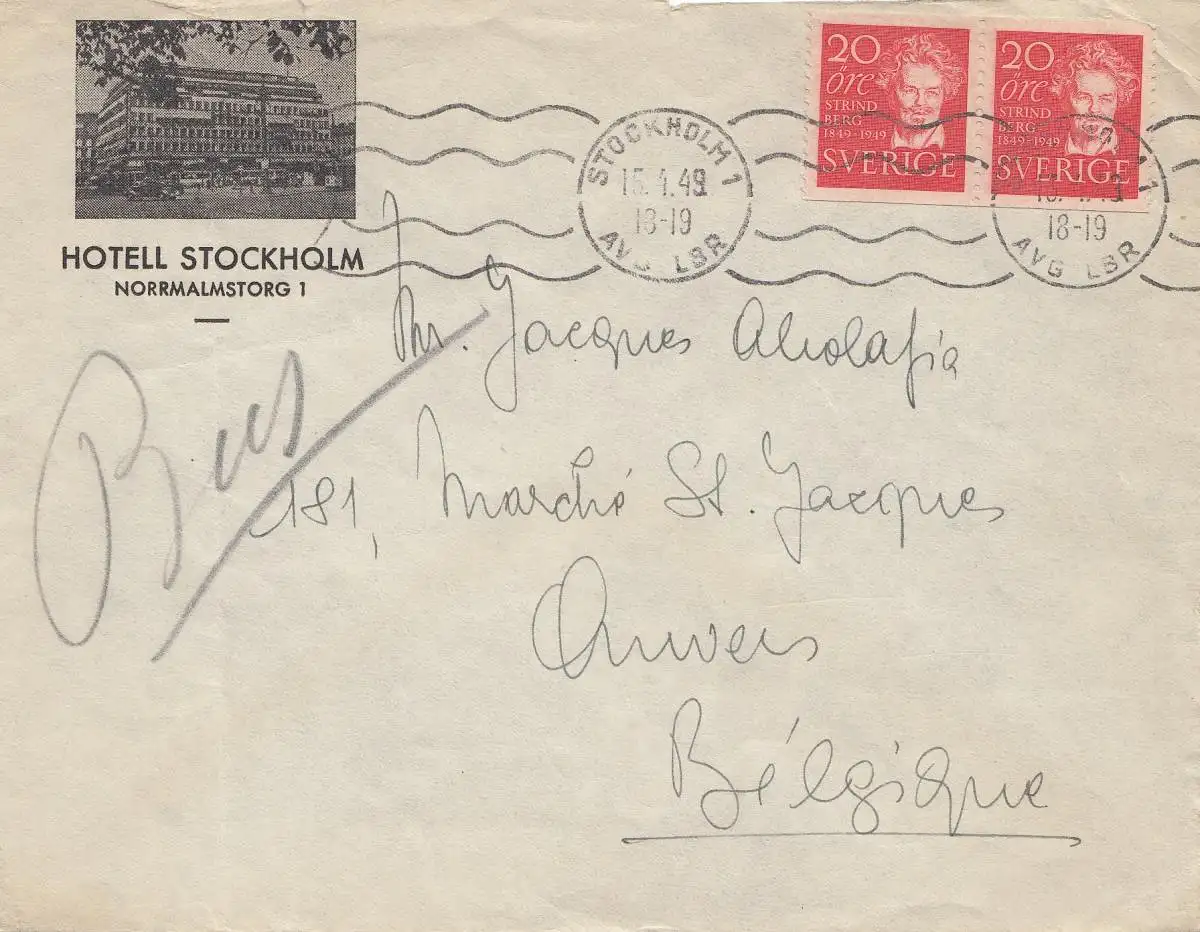 HOTELL STOCKHOLM
NORRMALMSTORG 1
STOCKHOLM 1
15.4.49
18-19
AVG LBR
20
öre
STRIND
BERG
1849-1949
SVERIGE
20
öre
STRIND
BERG
1849-1949
SVERIGE
1
18-19
AVG LBR
Mr. Jacques Alholafia
181, Marché St. Jacques
Anvers
Bélgique